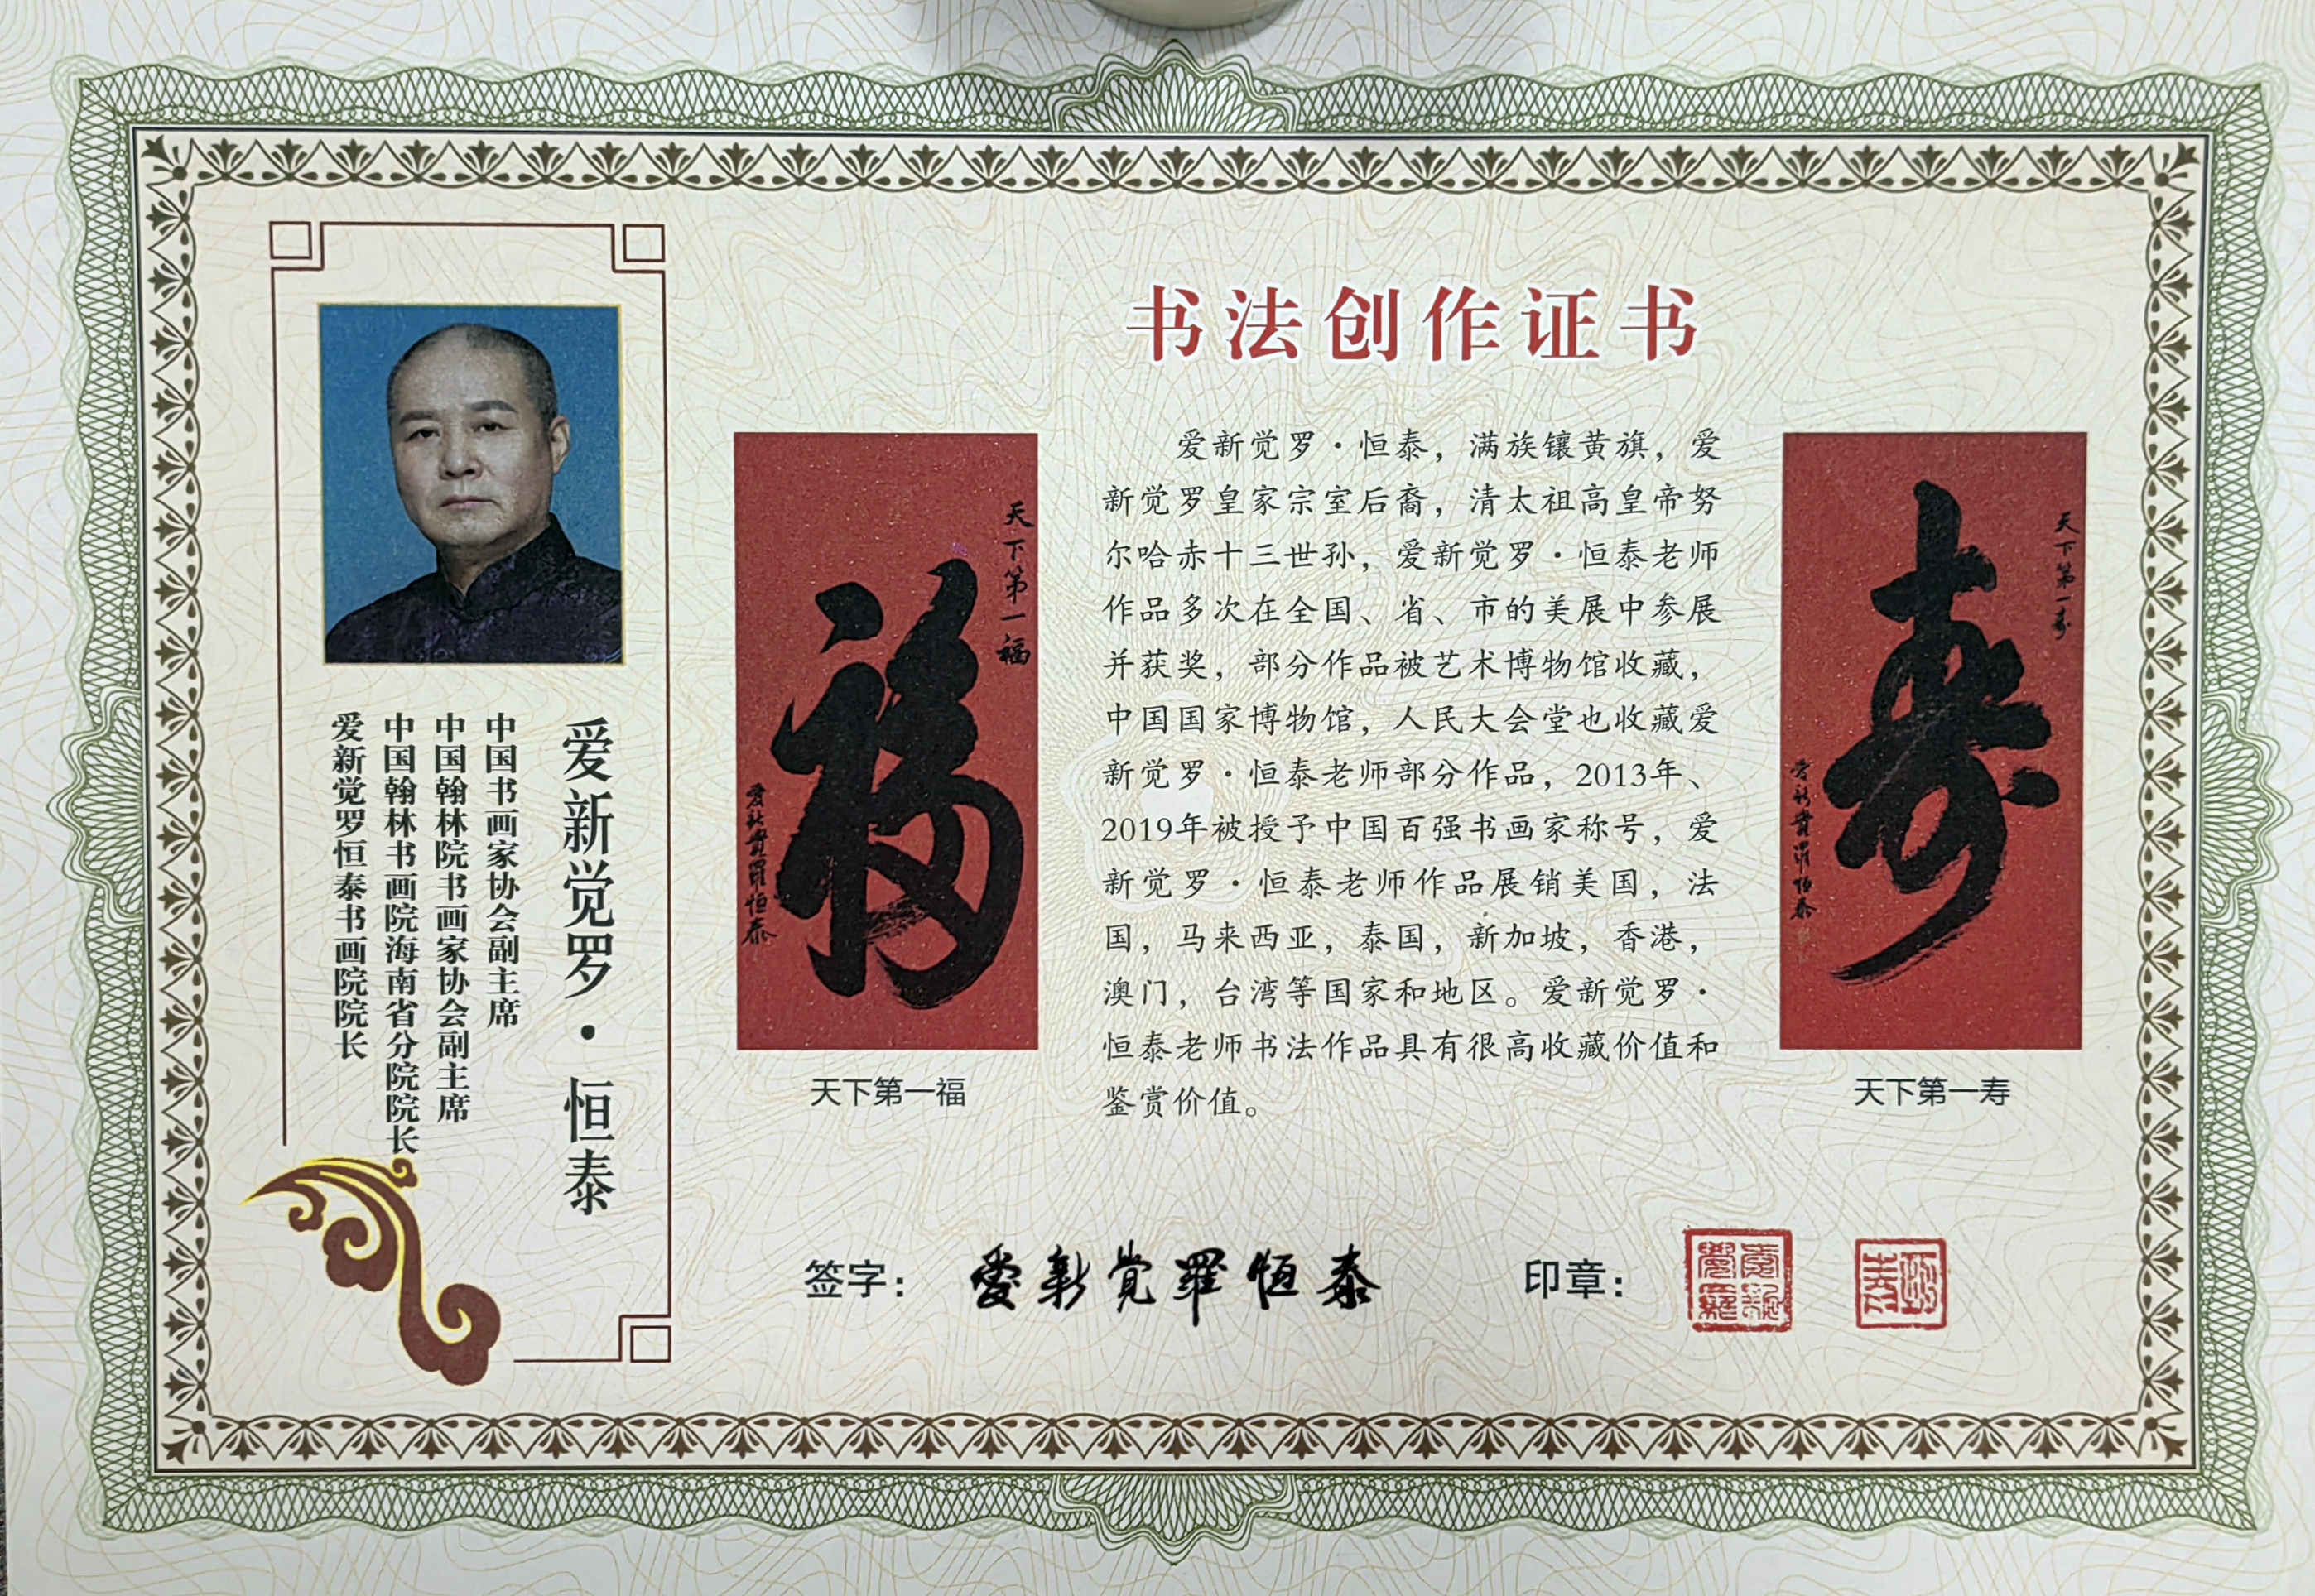 爱新觉罗·恒泰
中国书画家协会副主席
中国翰林院书画家协会副主席
中国翰林书画院海南省分院院长
爱新觉罗恒泰书画院院长
书法创作证书
天下第一福
福
爱新觉罗恒泰
天下第一福
爱新觉罗·恒泰，满族镶黄旗，爱
新觉罗皇家宗室后裔，清太祖高皇帝努
尔哈赤十三世孙，爱新觉罗·恒泰老师
作品多次在全国、省、市的美展中参展
并获奖，部分作品被艺术博物馆收藏，
中国国家博物馆，人民大会堂也收藏爱
新觉罗·恒泰老师部分作品，2013年、
2019年被授予中国百强书画家称号，爱
新觉罗·恒泰老师作品展销美国，法
国，马来西亚，泰国，新加坡，香港，
澳门，台湾等国家和地区。爱新觉罗·
恒泰老师书法作品具有很高收藏价值和
鉴赏价值。
天下第一寿
寿
爱新觉罗恒泰
天下第一寿
签字：爱新觉羅恒泰
印章：